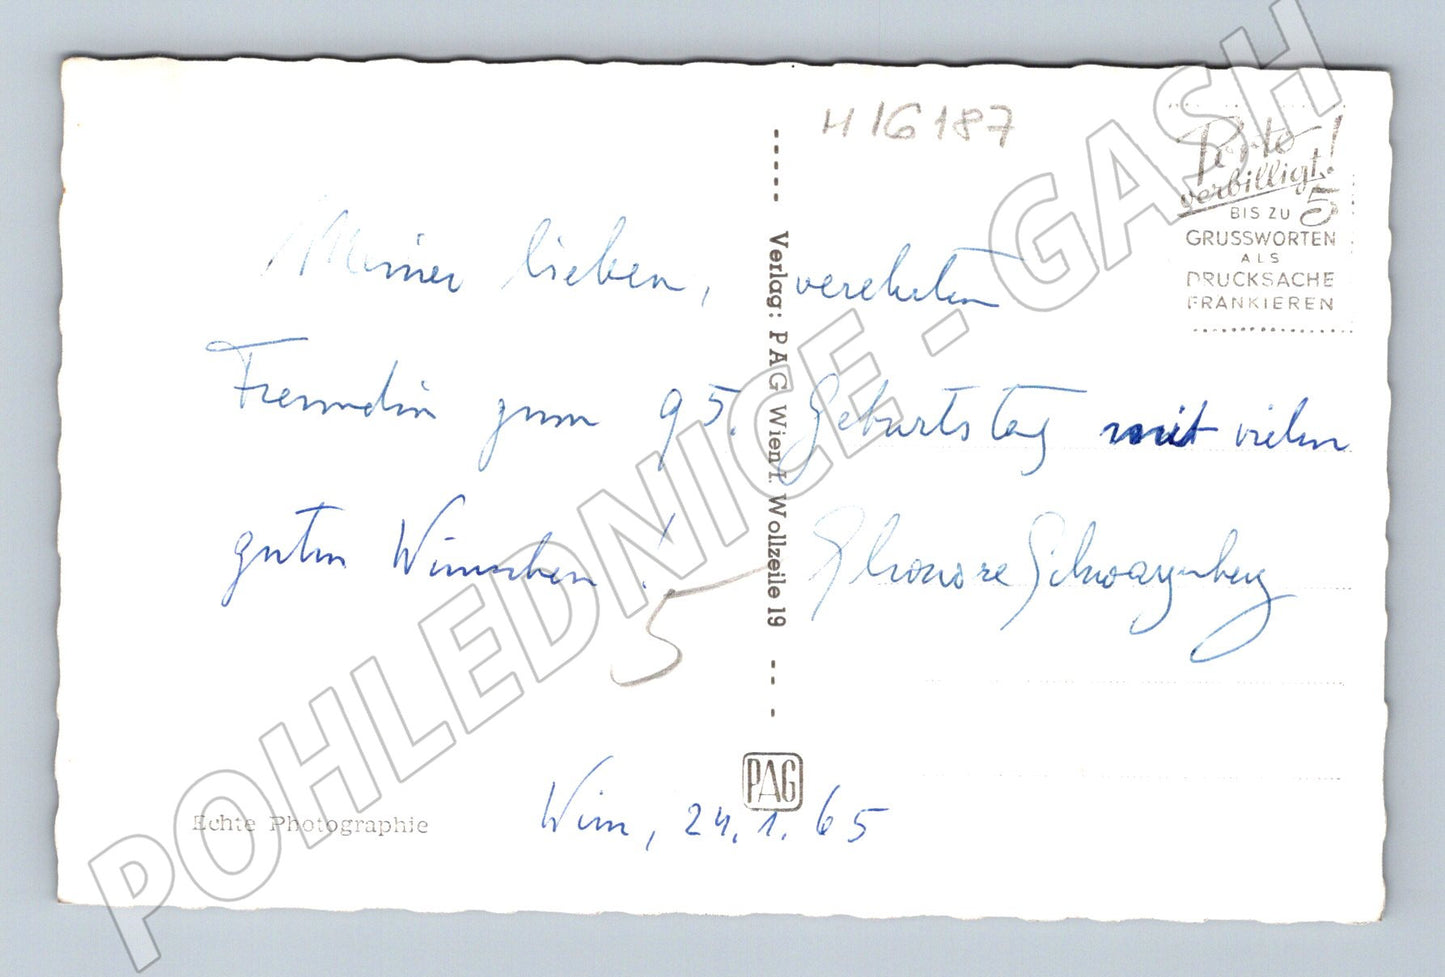 H 16187
Porto
verbilligt!
BIS ZU 5
GRUSSWORTEN
ALS
DRUCKSACHE
FRANKIEREN
Meiner lieben, verehrten
Freundin zum 95. Geburtstag mit vielen
guten Wünschen!
Eleonore Schwarzenberg
5
Wien, 24.1.65
Verlag: PAG Wien I. Wollzeile 19
PAG
Echte Photographie
POHLEDNICE - GASH